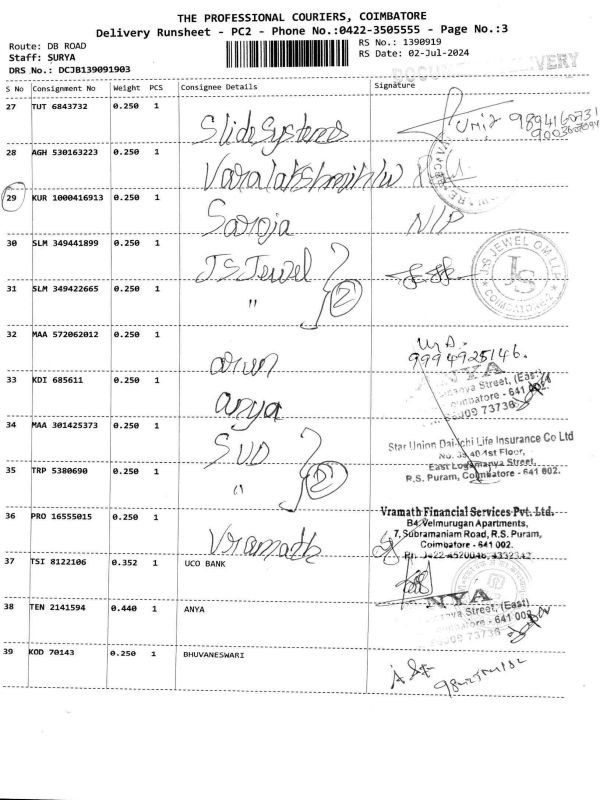 THE PROFESSIONAL COURIERS, COIMBATORE
Delivery Runsheet - PC2 - Phone No.:0422-3505555 - Page No.:3
Route: DB ROAD
Staff: SURYA
DRS No.: DCJB139091903
RS No.: 1390919
RS Date: 02-Jul-2024
S No Consignment No Weight PCS Consignee Details Signature
27 TUT 6843732 0.250 1 Slide Systems
28 AGH 530163223 0.250 1
29 KUR 1000416913 0.250 1 Saroja
30 SLM 349441899 0.250 1 JS Jewel
J-S JEWEL OM LIF
JS
COIMBATORE-2
31 SLM 349422665 0.250 1 " 2
32 MAA 572062012 0.250 1 arun
9994925146.
33 KDI 685611 0.250 1 anya
Street, (East)
34 MAA 301425373 0.250 1 SUD
Star Union Dai-ichi Life Insurance Co Ltd
1st Floor,
35 TRP 5380690 0.250 1 " 2
East Logamanya Street,
R.S. Puram, Coimbatore - 641 002.
36 PRO 16555015 0.250 1 Vramath
Vramath Financial Services Pvt. Ltd.
B4, Velmurugan Apartments,
7, Subramaniam Road, R.S. Puram,
Coimbatore - 641 002.
37 TSI 8122106 0.352 1 UCO BANK
38 TEN 2141594 0.440 1 ANYA
Street, (East)
39 KOD 70143 0.250 1 BHUVANESWARI